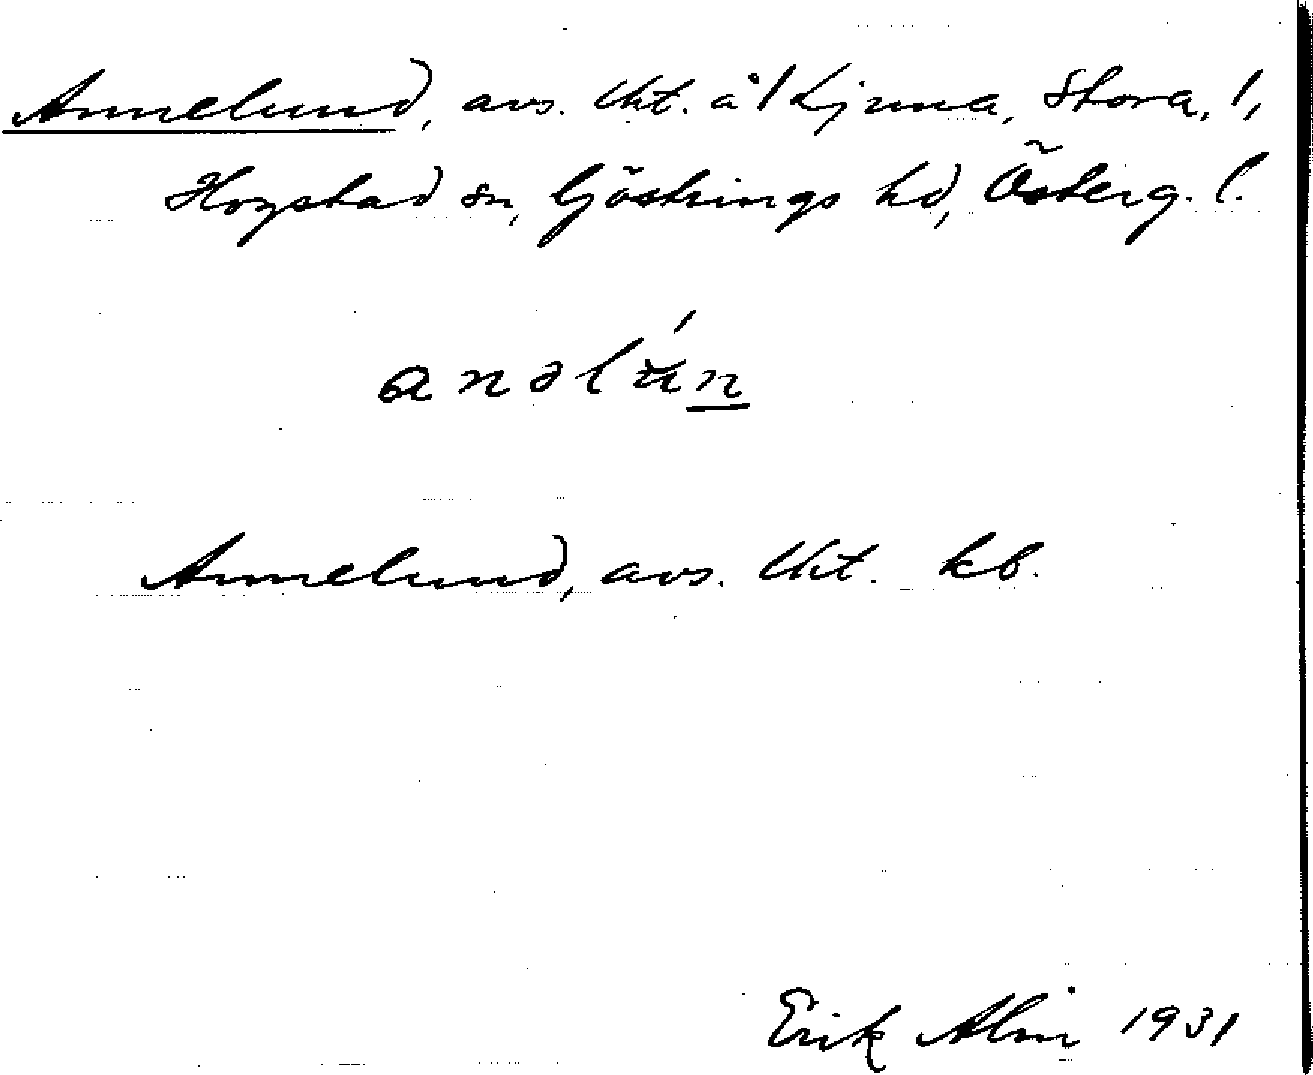 Annelund, avs. lht. å 1 Ljuna, Stora, 1,
Hogstad sn, Göstrings hd, Österg. l.
anəlún
Annelund, avs. lht. kb.
Erik Alm 1931